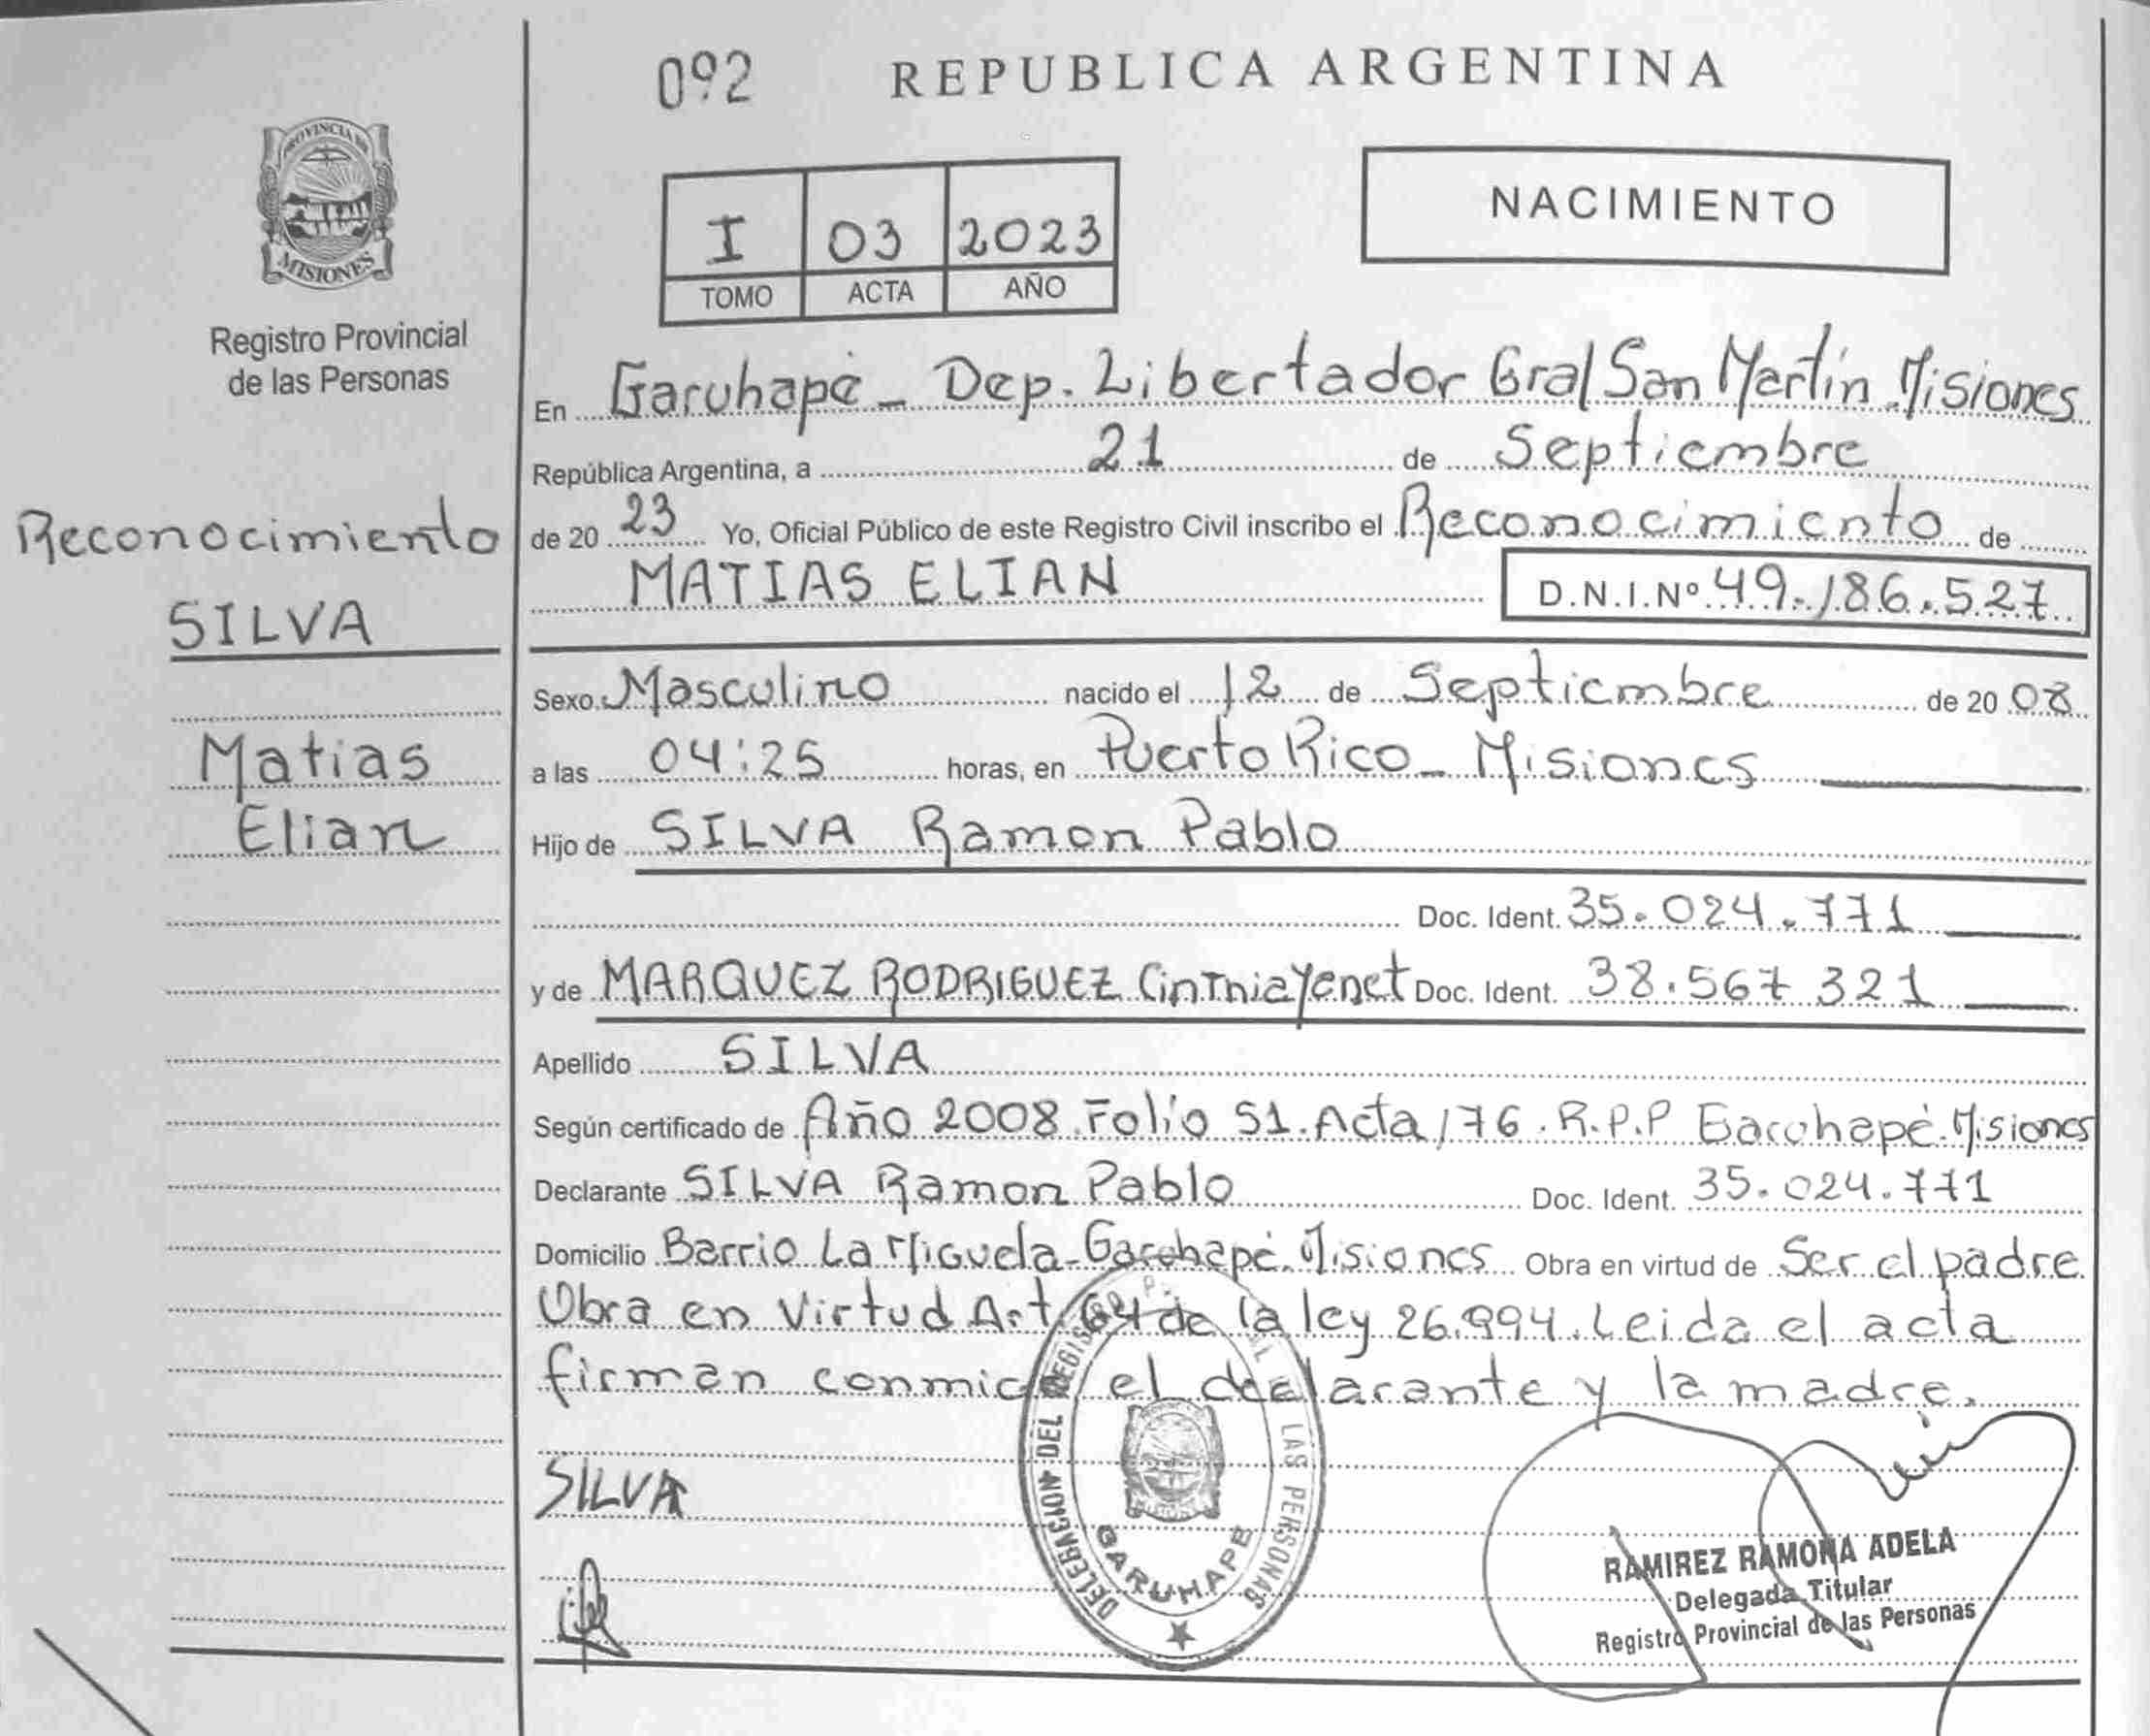 092 REPUBLICA ARGENTINA
PROVINCIA DE
MISIONES
Registro Provincial
de las Personas
NACIMIENTO
I 03 2023
TOMO ACTA AÑO
Reconocimiento
SILVA
Matias
Elian
En Garuhapé - Dep. Libertador Gral San Martín Misiones
República Argentina, a 21 de Septiembre
de 20 23 Yo, Oficial Público de este Registro Civil inscribo el Reconocimiento de
MATIAS ELIAN D.N.I.Nº 49.186.527
Sexo Masculino nacido el 12 de Septiembre de 20 08
a las 04:25 horas, en Puerto Rico - Misiones
Hijo de SILVA Ramon Pablo
Doc. Ident. 35.024.771
y de MARQUEZ RODRIGUEZ Cinthia Yenet Doc. Ident. 38.567 321
Apellido SILVA
Según certificado de Año 2008 Folio 51. Acta 176. R.P.P Garuhapé. Misiones
Declarante SILVA Ramon Pablo Doc. Ident. 35.024.771
Domicilio Barrio La - Garuhapé. Misiones Obra en virtud de Ser el padre
Obra en Virtud Art 64 de la ley 26.994. Leida el acta
firman conmigo el declarante y la madre.
SILVA
DELEGACION DEL REGISTRO LAS PERSONAS
GARUHAPE
RAMIREZ RAMONA ADELA
Delegada Titular
Registro Provincial de las Personas